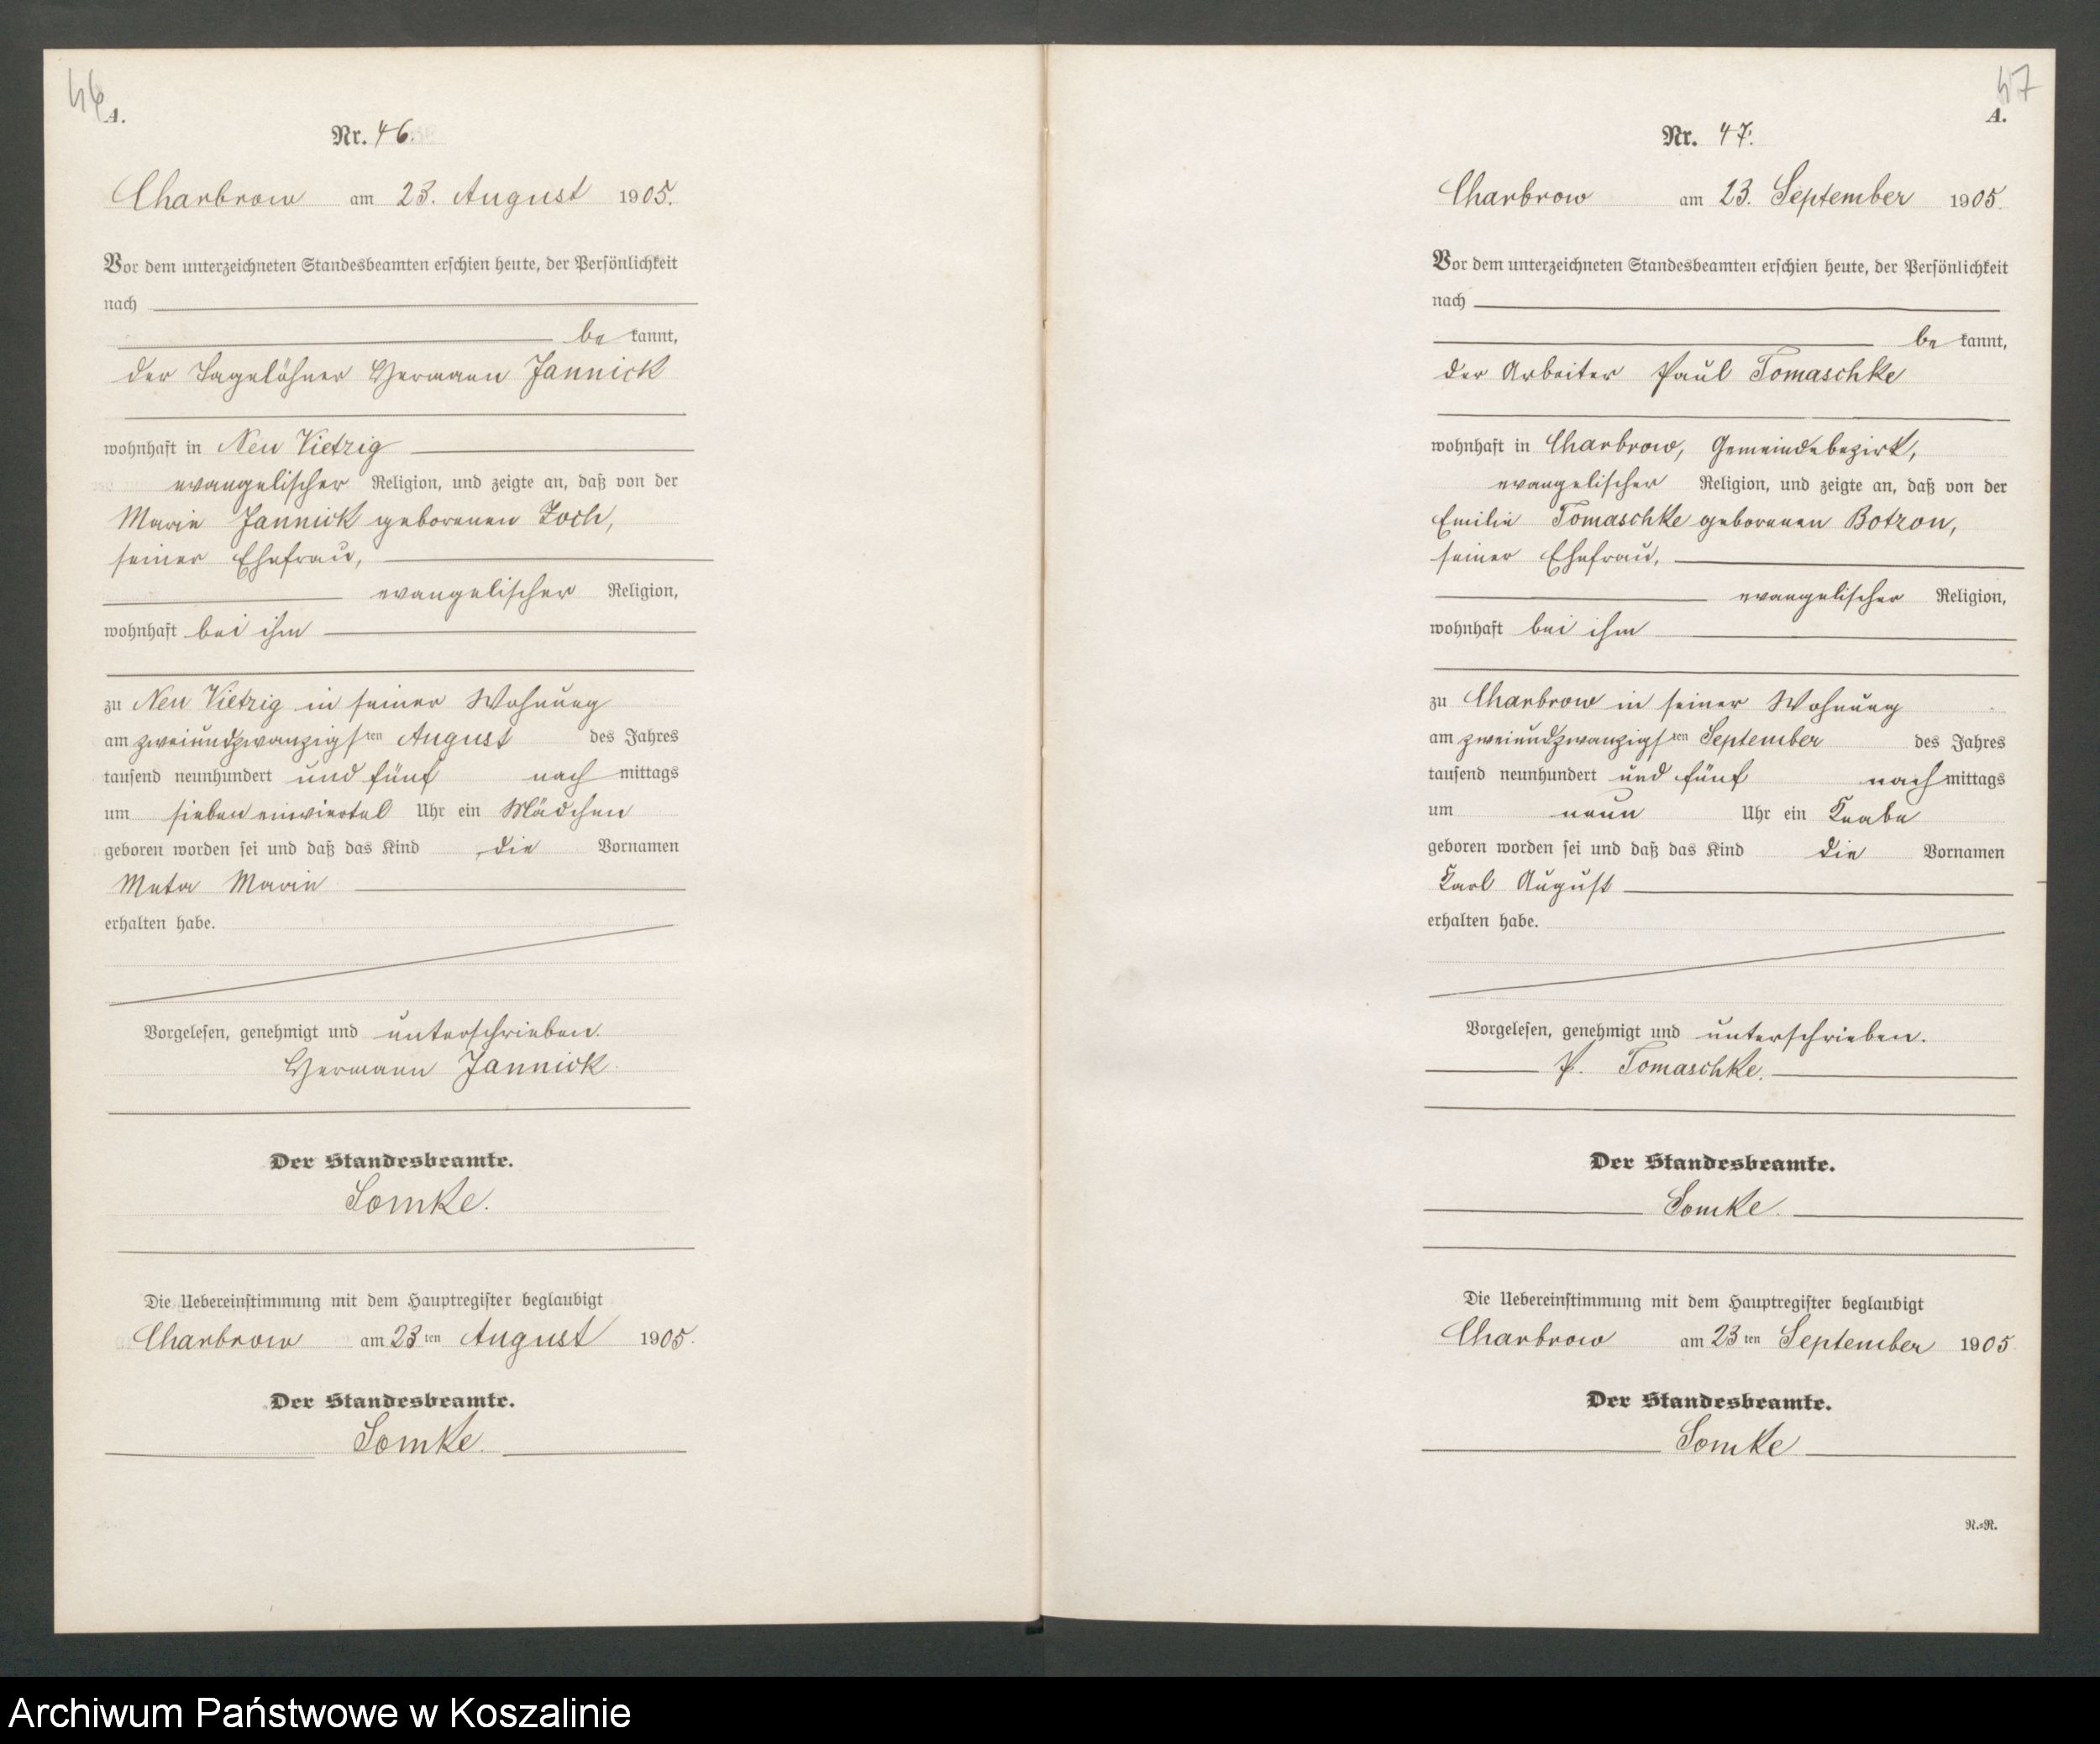 46
A.
Nr. 46.
Charbrow am 23. August 1905.
Vor dem unterzeichneten Standesbeamten erschien heute, der Persönlichkeit
nach
be kannt,
der Tagelöhner Hermann Jannick
wohnhaft in Neu Vietzig
evangelischer Religion, und zeigte an, daß von der
Marie Jannick geborenen Zoch,
seiner Ehefrau,
evangelischer Religion,
wohnhaft bei ihm
zu Neu Vietzig in seiner Wohnung
am zweiundzwanzigsten August des Jahres
tausend neunhundert und fünf nach mittags
um sieben einviertel Uhr ein Mädchen
geboren worden sei und daß das Kind die Vornamen
Meta Marie
erhalten habe.
Vorgelesen, genehmigt und unterschrieben.
Hermann Jannick.
Der Standesbeamte.
Somke.
Die Uebereinstimmung mit dem Hauptregister beglaubigt
Charbrow am 23ten August 1905.
Der Standesbeamte.
Somke.
47
A.
Nr. 47.
Charbrow am 23. September 1905.
Vor dem unterzeichneten Standesbeamten erschien heute, der Persönlichkeit
nach
be kannt,
der Arbeiter Paul Tomaschke
wohnhaft in Charbrow, Gemeindebezirk,
evangelischer Religion, und zeigte an, daß von der
Emilie Tomaschke geborenen Botzon,
seiner Ehefrau,
evangelischer Religion,
wohnhaft bei ihm
zu Charbrow in seiner Wohnung
am zweiundzwanzigsten September des Jahres
tausend neunhundert und fünf nach mittags
um neun Uhr ein Knabe
geboren worden sei und daß das Kind die Vornamen
Karl August
erhalten habe.
Vorgelesen, genehmigt und unterschrieben.
P. Tomaschke.
Der Standesbeamte.
Somke.
Die Uebereinstimmung mit dem Hauptregister beglaubigt
Charbrow am 23ten September 1905
Der Standesbeamte.
Somke
N.=N.
Archiwum Państwowe w Koszalinie